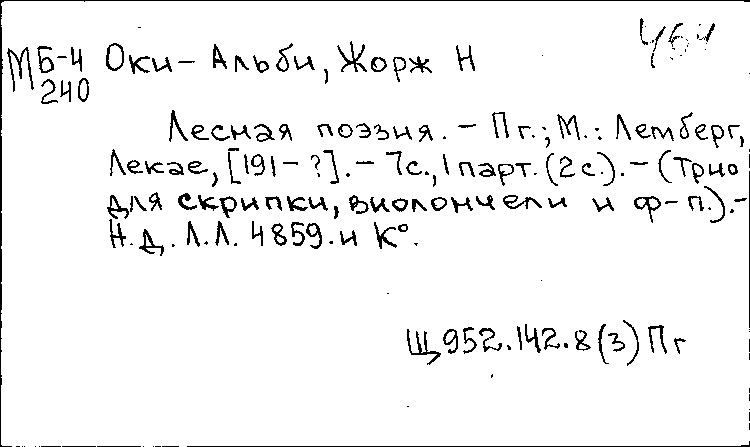 464
МБ-4 Оки-Альби, Жорж Н
240
Лесная поэзия. - Пг.; М.: Лемберг,
Лекае, [191-?]. - 7с., 1 парт. (2с.). - (Трио
для скрипки, виолончели и ф-п.). -
Н.д. Л.Л. 4859. и К°.
Щ952.142.8(3) Пг